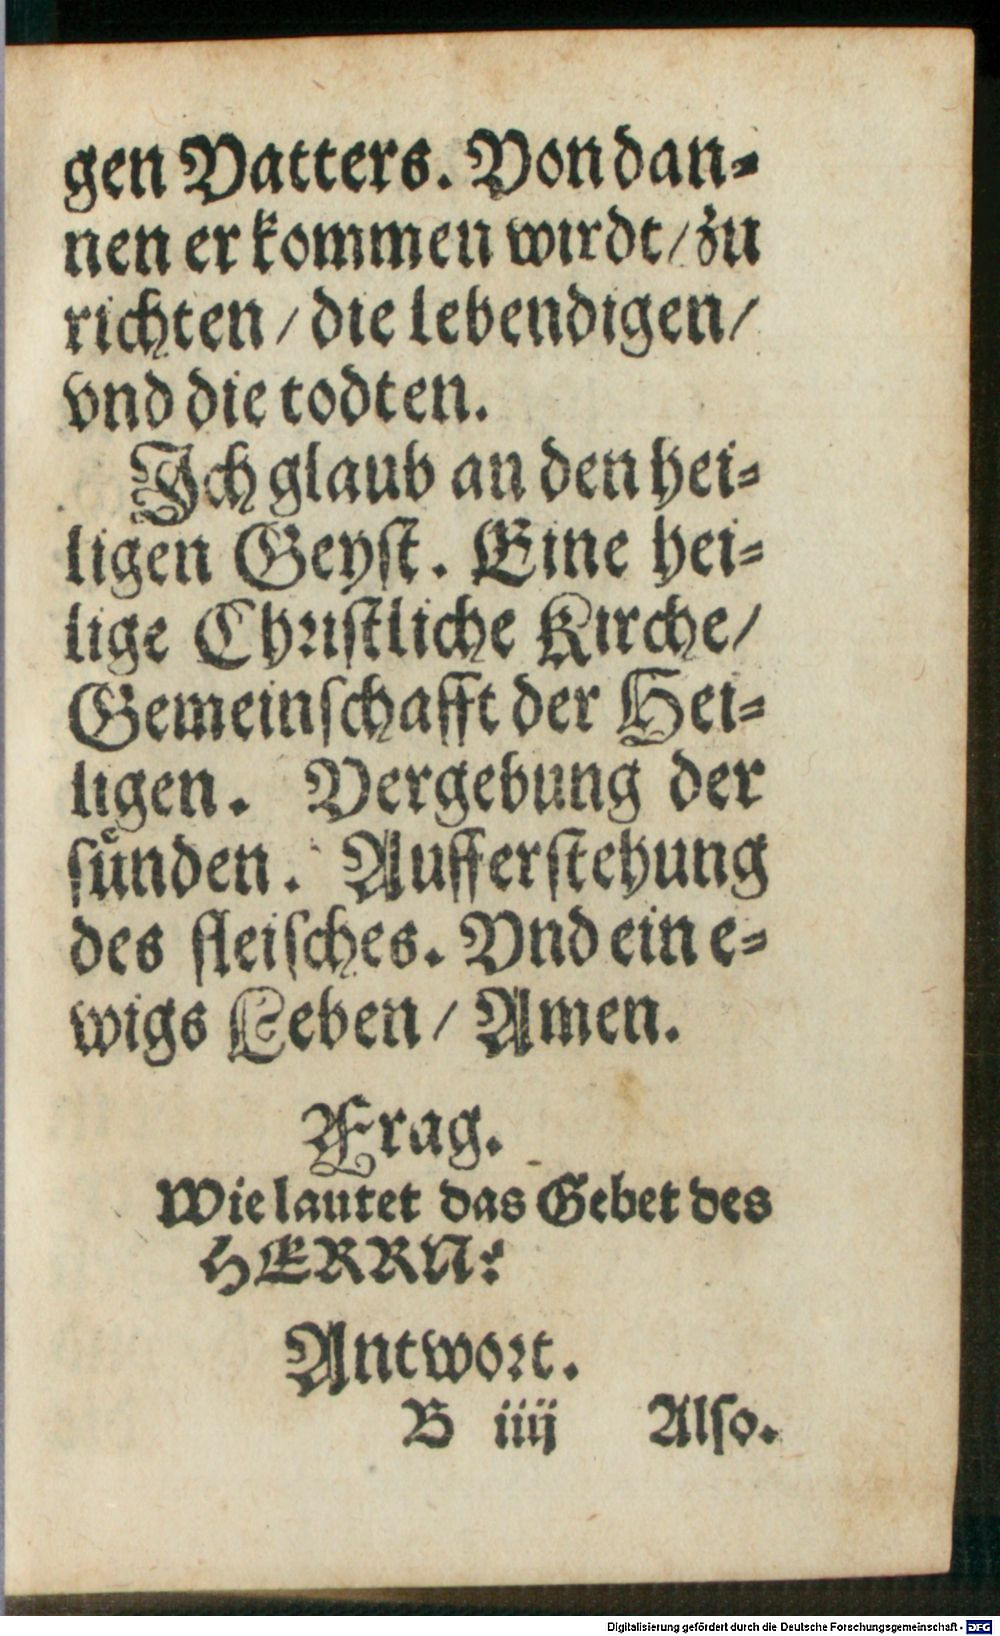 gen Vatters. Von dan⸗
nen er kommen wirdt/ zu
richten/ die lebendigen/
vnd die todten.
Ich glaub an den hei⸗
ligen Geyſt. Eine hei⸗
lige Chriſtliche Kirche/
Gemeinſchafft der Hei⸗
ligen. Vergebung der
ſuͤnden. Aufferſtehung
des fleiſches. Vnd ein e⸗
wigs Leben/ Amen.
Frag.
Wie lautet das Gebet des
HERRN?
Antwort.
B iiij Alſo.
Digitalisierung gefördert durch die Deutsche Forschungsgemeinschaft - DFG